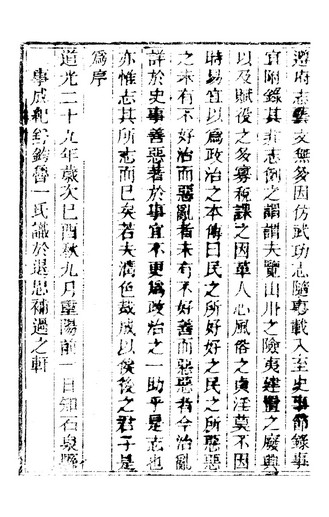 遵府志藝文無多因仿武功志隨事載入至史事節錄事
宜附錄其非志例之謂謂夫覽山川之險夷建置之廢興
以及賦役之多寡稅課之因革人心風俗之貞淫莫不因
時易宜以為政治之本傳曰民之所好好之民之所惡惡
之未有不好治而惡亂者未有不好善而惡惡者今治亂
詳於史事善惡著於事宜不更為政治之一助乎是志也
亦惟志其所志而已矣若夫潤色裁成以俟後之君子是
為序
道光二十九年歲次己酉秋九月重陽前一日知石泉縣
事成紀舒鈞魯一氏識於退思補過之軒